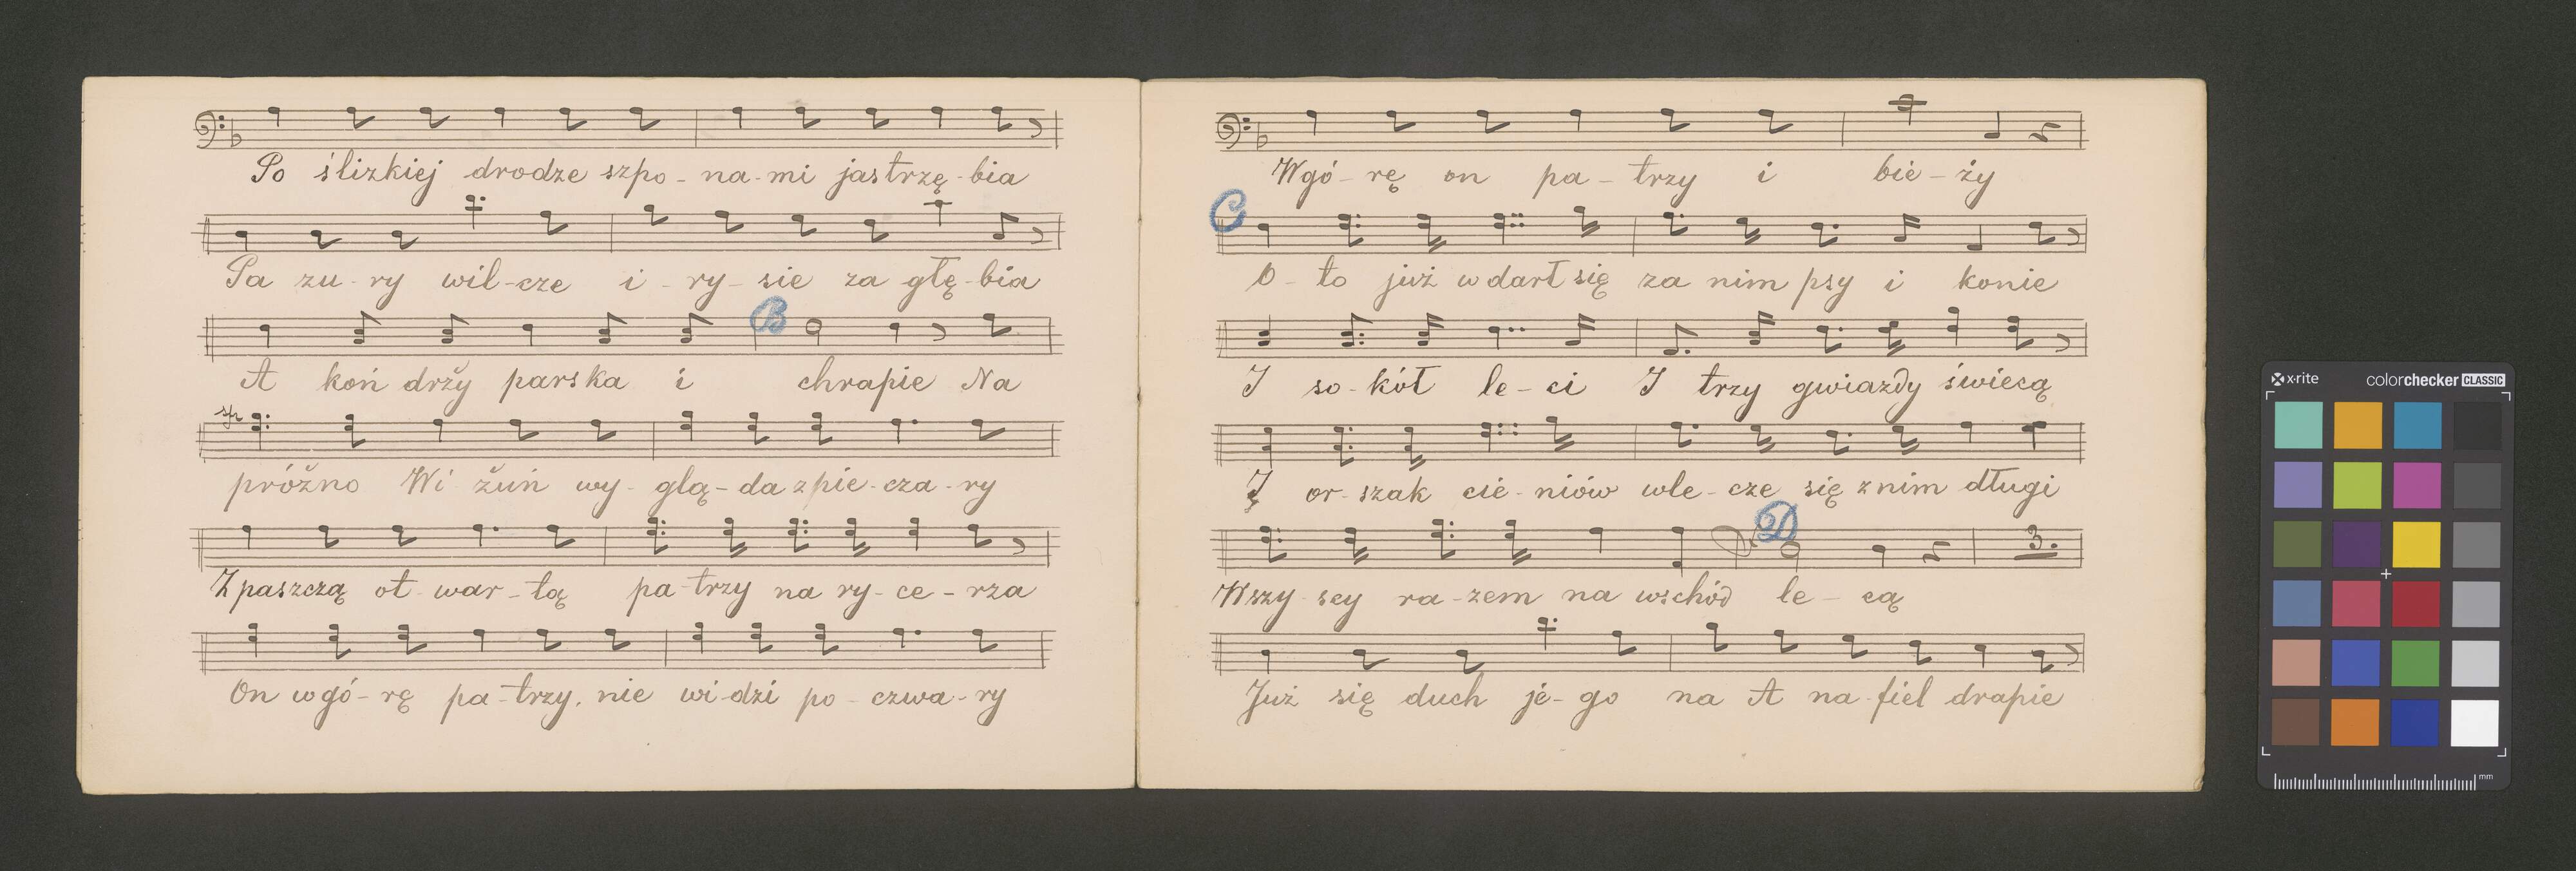 Po ślizkiej drodze szpo-na-mi jastrzę-bia
Pa zu-ry wil-cze i-ry-sie za głę-bia
B
A koń drży parska i chrapie Na
próżno Wi żuń wy-glą-da z pie-cza-ry
Z paszczą ot-war-tą pa-trzy na ry-ce-rza
On w gó-rę pa-trzy, nie wi-dzi po-czwa-ry
W gó-rę on pa-trzy i bie-ży
C
O-to już wdarł się za nim psy i konie
I so-kół le-ci I trzy gwiazdy świecą
I or-szak cie-niów wle-cze się z nim długi
D
3.
Wszy-scy ra-zem na wschód le-cą
Już się duch je-go na A na-fiel drapie
x-rite colorchecker CLASSIC
mm